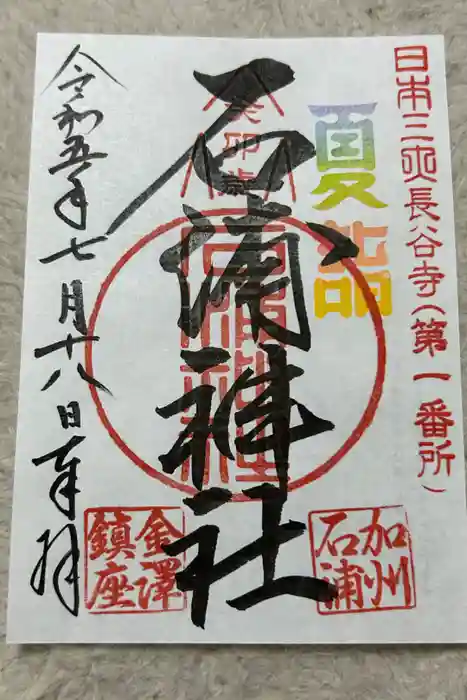 日本三大長谷寺(第一番所)
夏詣
癸卯歳
石浦神社
石浦神社
加州
石浦
金澤
鎮座
令和五年七月十八日奉拝